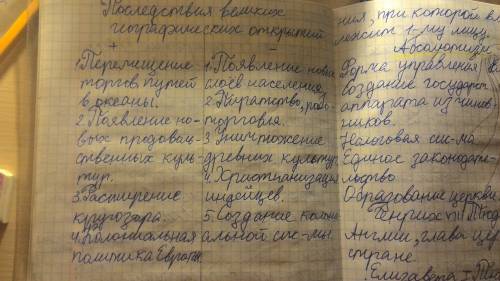 Последствия великих
географических открытий
+
–
1. Перемещение
торгов. путей
в океаны.
2. Появление но-
вых продоволь-
ственных куль-
тур.
3. Расширение
кругозора.
4. Колониальная
политика Европы
1. Появление новых
слоёв населения
2. Пиратство, рабо-
торговля.
3. Уничтожение
древних культур
4. Христианизация
индейцев.
5. Создание колони-
альной сис-мы.
ния, при которой в
лежит 1-му лицу.
Абсолютизм
Форма управления
создание государст
аппарата из чинов-
ников.
Налоговая сис-ма
Единое законода-
льство.
Образование церкви
Генрих
Англии, глава
стране.
Елизавета I